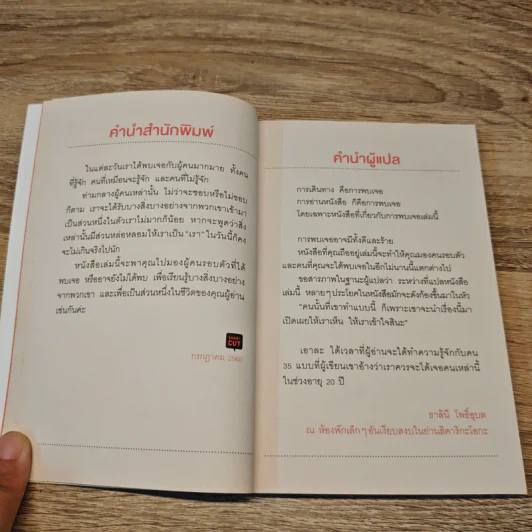 คำนำสำนักพิมพ์
ในแต่ละวันเราได้พบเจอกับผู้คนมากมาย ทั้งคน
ที่รู้จัก คนที่เหมือนจะรู้จัก และคนที่ไม่รู้จัก
ท่ามกลางผู้คนเหล่านั้น ไม่ว่าจะชอบหรือไม่ชอบ
ก็ตาม เราจะได้รับบางสิ่งบางอย่างจากพวกเขาเข้ามา
เป็นส่วนหนึ่งในตัวเราไม่มากก็น้อย หากจะพูดว่าสิ่ง
เหล่านั้นมีส่วนหล่อหลอมให้เราเป็น "เรา" ในวันนี้ก็คง
จะไม่เกินจริงไปนัก
หนังสือเล่มนี้จะพาคุณไปมองผู้คนรอบตัวที่ได้
พบเจอ หรืออาจยังไม่ได้พบ เพื่อเรียนรู้บางสิ่งบางอย่าง
จากพวกเขา และเพื่อเป็นส่วนหนึ่งในชีวิตของคุณผู้อ่าน
เช่นกันค่ะ
CUT
กรกฎาคม 2560
คำนำผู้แปล
การเดินทาง คือการพบเจอ
การอ่านหนังสือ ก็คือการพบเจอ
โดยเฉพาะหนังสือที่เกี่ยวกับการพบเจอเล่มนี้
การพบเจออาจมีทั้งดีและร้าย
หนังสือที่คุณถืออยู่เล่มนี้จะทำให้คุณมองคนรอบตัว
และคนที่คุณจะได้พบเจอในอีกไม่นานนี้แตกต่างไป
ขอสารภาพในฐานะผู้แปลว่า ระหว่างที่แปลหนังสือ
เล่มนี้ หลายๆประโยคในหนังสือมักจะดังก้องขึ้นมาในหัว
"คนนั้นที่เขาทำแบบนี้ ก็เพราะเขาจะนำเรื่องนี้มา
เปิดเผยให้เราเห็น ให้เราเข้าใจสินะ"
เอาละ ได้เวลาที่ผู้อ่านจะได้ทำความรู้จักกับคน
35 แบบที่ผู้เขียนเขาอ้างว่าเราควรจะได้เจอคนเหล่านี้
ในช่วงอายุ 20 ปี
ธาลินี โพธิ์อุบล
ณ ห้องพักเล็กๆอันเงียบสงบในย่านฮิคาริกะโอกะ